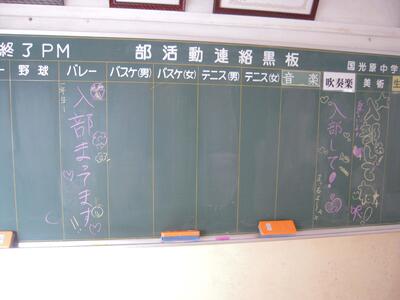 終了PM 部活動連絡黒板 国光原中学
野球 バレー バスケ(男) バスケ(女) テニス(男) テニス(女) 音楽 吹奏楽 美術 生
入部まってます
入部して!
入部して